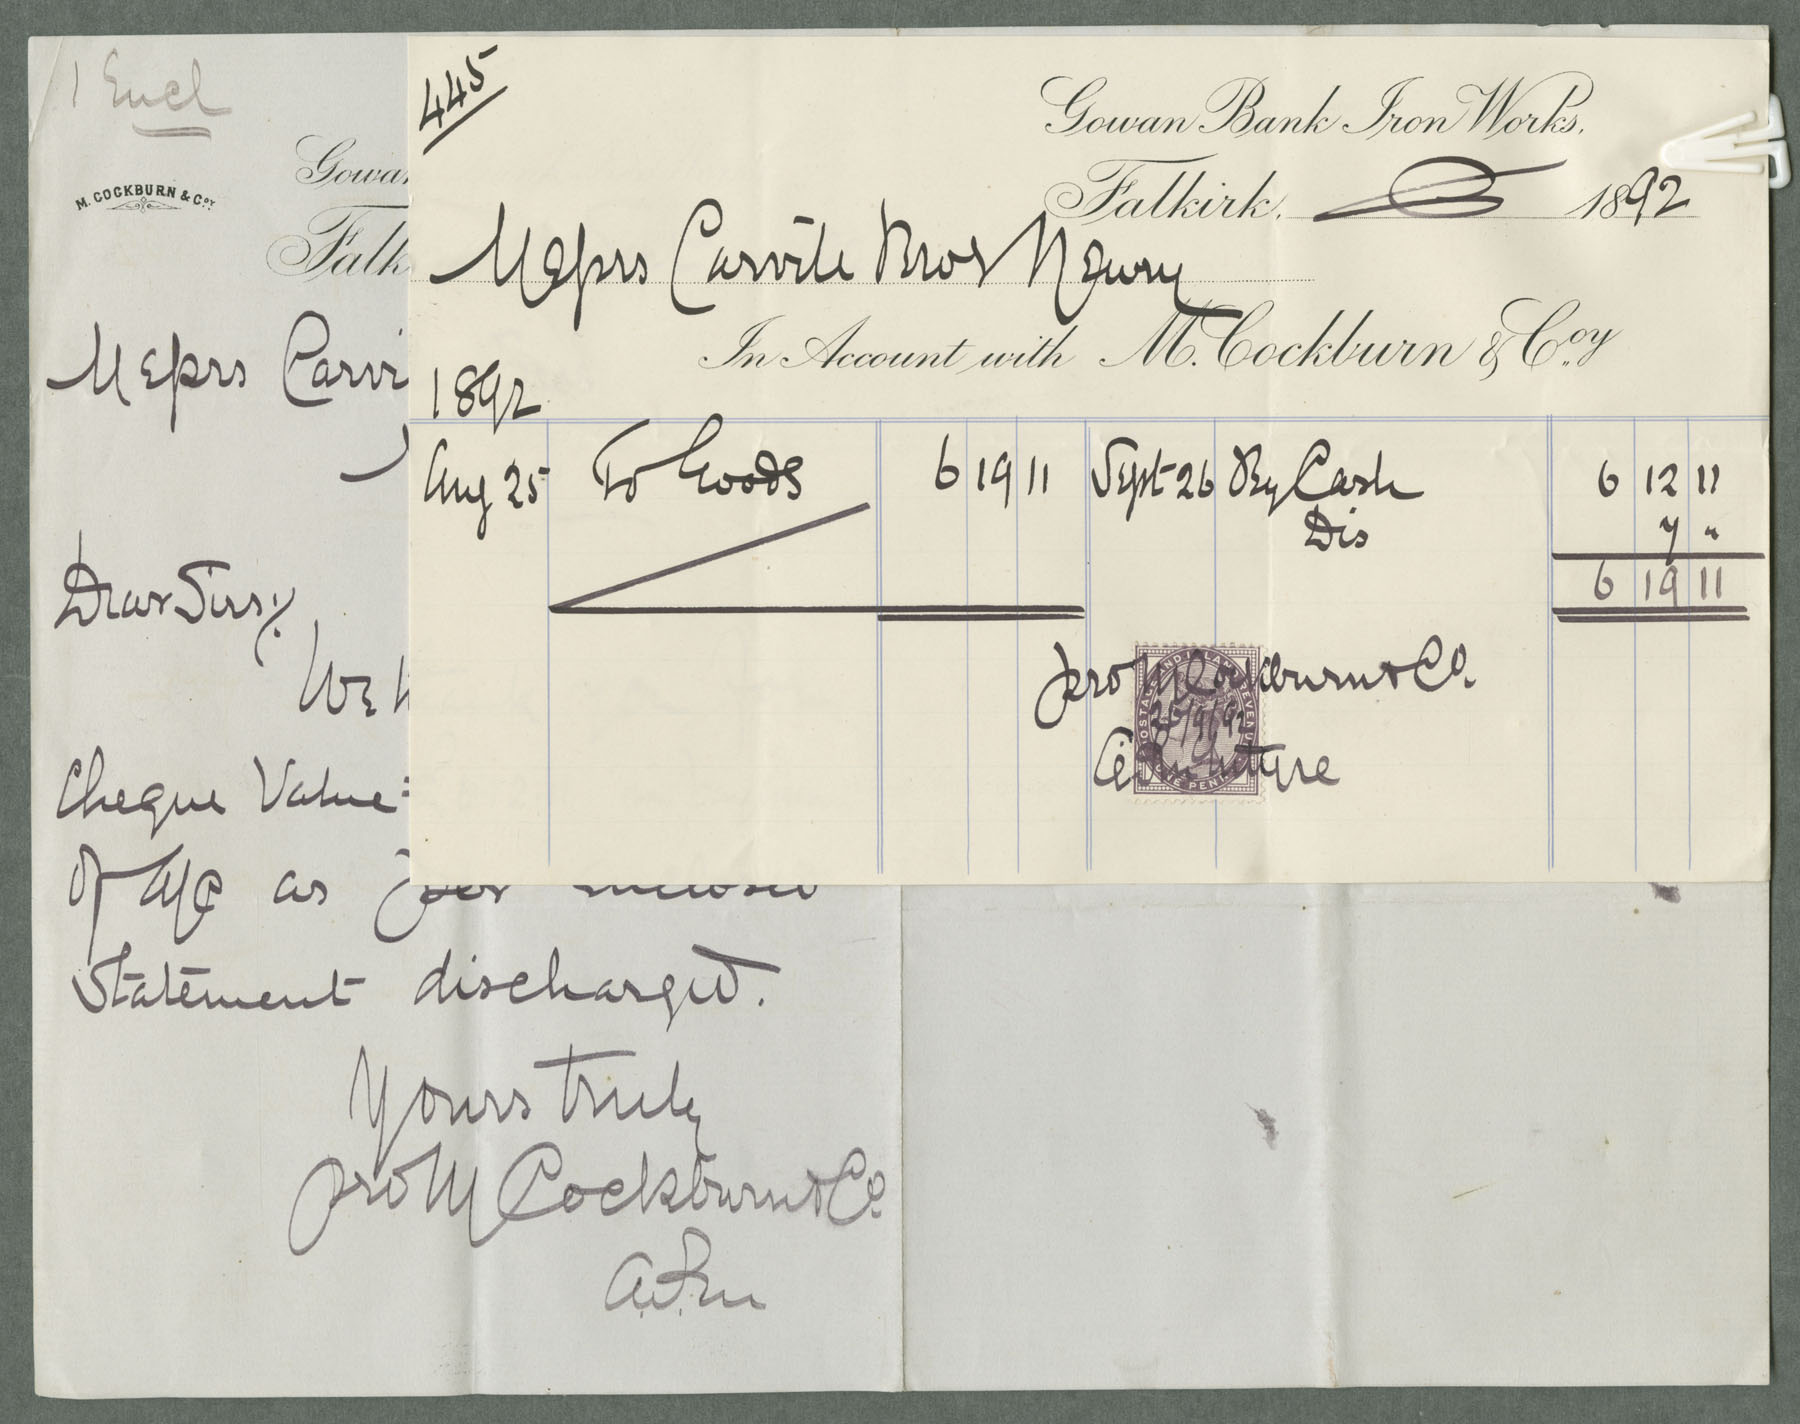 445
Gowan Bank Iron Works.
Falkirk. 1892
Messrs Carvile Bros Newry
In Account with M. Cockburn & Coy
1892
Aug 25 To Goods 6 19 11 Sept 26 By Cash 6 12 11
Dis 7 "
6 19 11
pro M Cockburn & Co.
26/9/92
POSTAGE AND INLAND REVENUE
ONE PENNY
1 Encl
M. COCKBURN & Coy.
Gowan
Falk
Messrs Carvi
Dear Sirs;
We
Cheque Value
of a/c as per enclosed
Statement discharged.
Yours truly
pro M Cockburn & Co.